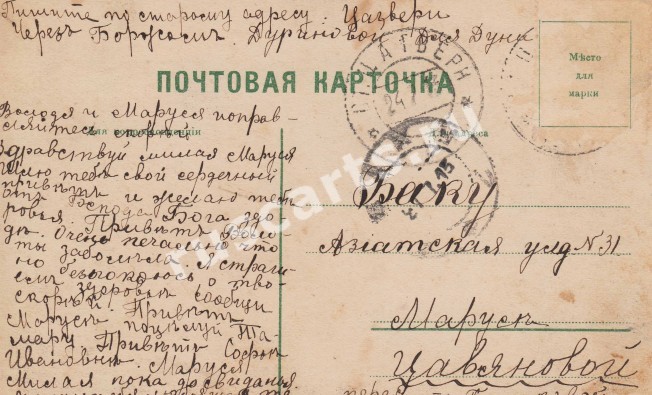 Пишите по старому адресу: Цагвери
Через Боржомъ. Дурановой для Дуни
Мѣсто
для
марки
ПОЧТОВАЯ КАРТОЧКА
24
15
Володя и Маруся поправ-
ляйтесь скорѣй
Здравствуй милая Маруся
Шлю тебѣ свой сердечный
привѣтъ и желаю тебѣ
отъ Господа Бога здо-
ровья. Привѣтъ Воло-
дѣ. Очень печально что
ты заболѣла. Я страш-
но безпокоюсь о тво-
емъ здоровьи сообщи
скорѣй. Привѣтъ
Марусѣ поцѣлуй
мару. Привѣтъ Софьѣ
Ивановнѣ. Маруся
Милая пока до свиданья.
Баку
Азіатская улд № 31
Марусѣ
Цавяновой
rus-carta.ru